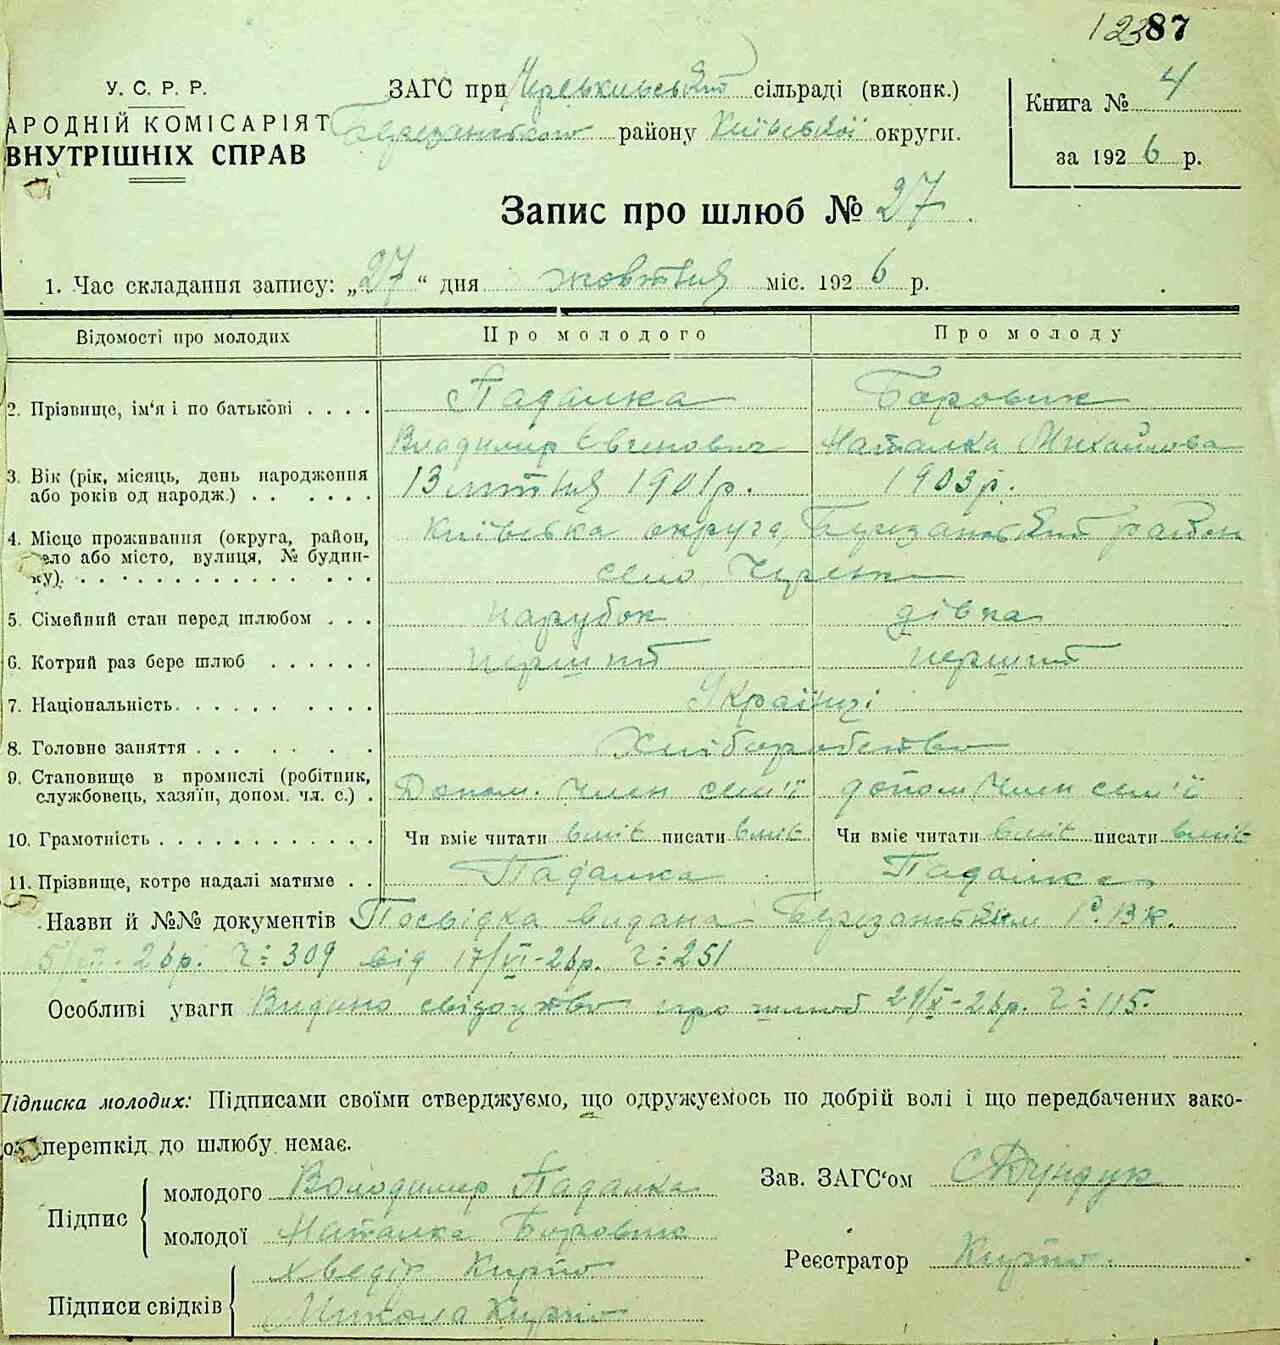 12387
У. С. Р. Р.
АРОДНІЙ КОМІСАРІЯТ
ВНУТРІШНІХ СПРАВ
ЗАГС при сільраді (виконк.)
Березанського району Київської округи.
Книга № 4
за 1926 р.
Запис про шлюб № 27
1. Час складання запису: „27“ дня жовтня міс. 1926 р.
Відомості про молодих Про молодого Про молоду
2. Прізвище, ім'я і по батькові . . . . Падалка Боровик
Владимир Євгенович Наталка Михайлова
3. Вік (рік, місяць, день народження
або років од народж.) . . . . . . 13 1901р. 1903р.
4. Місце проживання (округа, район, Київська округа, Березанський район
ело або місто, вулиця, № будин-
ку). . . . . . . . . . . . . . . . село
5. Сімейний стан перед шлюбом . . . парубок дівка
6. Котрий раз бере шлюб . . . . . . перший перший
7. Національність. . . . . . . . . . Українці
8. Головне заняття . . . . . . . Хліборобство
9. Становище в промислі (робітник,
службовець, хазяїн, допом. чл. с.) . Допом. член сем'ї допом член сем'ї
10. Грамотність . . . . . . . . . . . . Чи вміє читати вміє писати вміє Чи вміє читати вміє писати вміє
11. Прізвище, котре надалі матиме . . Падалка Падалка
Назви й №№ документів Посвідка видана Березанським Р.В.К.
26р. Ч: 309 від 17/VI-26р. Ч: 251
Особливі уваги Видано свідоцтво про шлюб 29/X-26р. Ч: 115.
Підписка молодих: Підписами своїми стверджуємо, що одружуємось по добрій волі і що передбачених зако-
ом перешкід до шлюбу немає.
Підпис молодого Володимир Падалка
молодої Наталка Боровик
Зав. ЗАГС'ом
Підписи свідків Хведір Кирпо
Микола Кирпо
Реєстратор Кирпо.